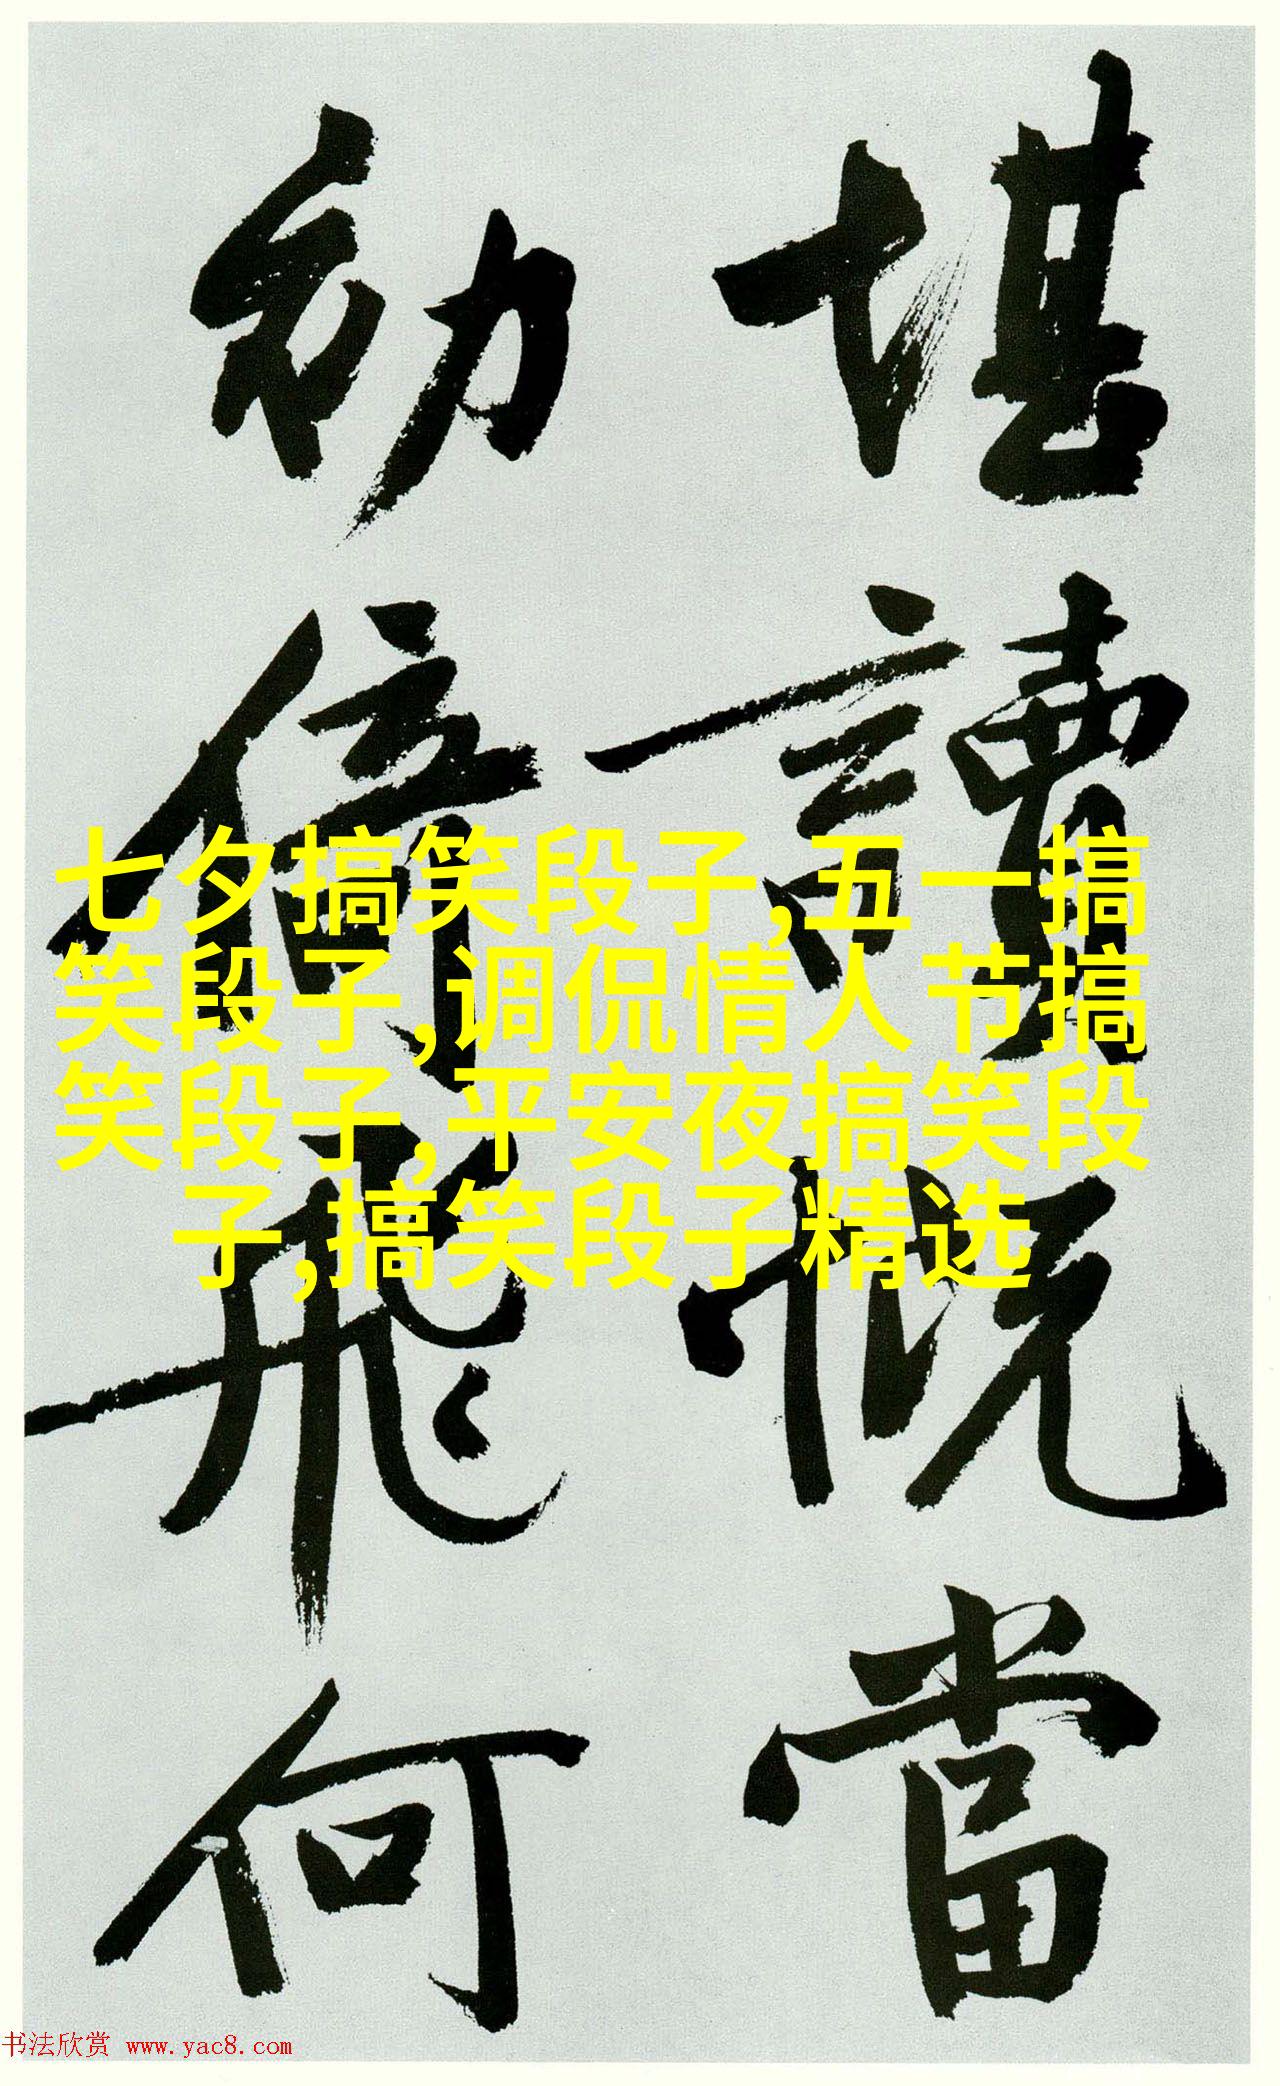 堪讀慨當
幼倍飛何
七夕搞笑段子,五一搞
笑段子,调侃情人节搞
笑段子,平安夜搞笑段
子,搞笑段子精选
书法欣赏 www.yac8.com